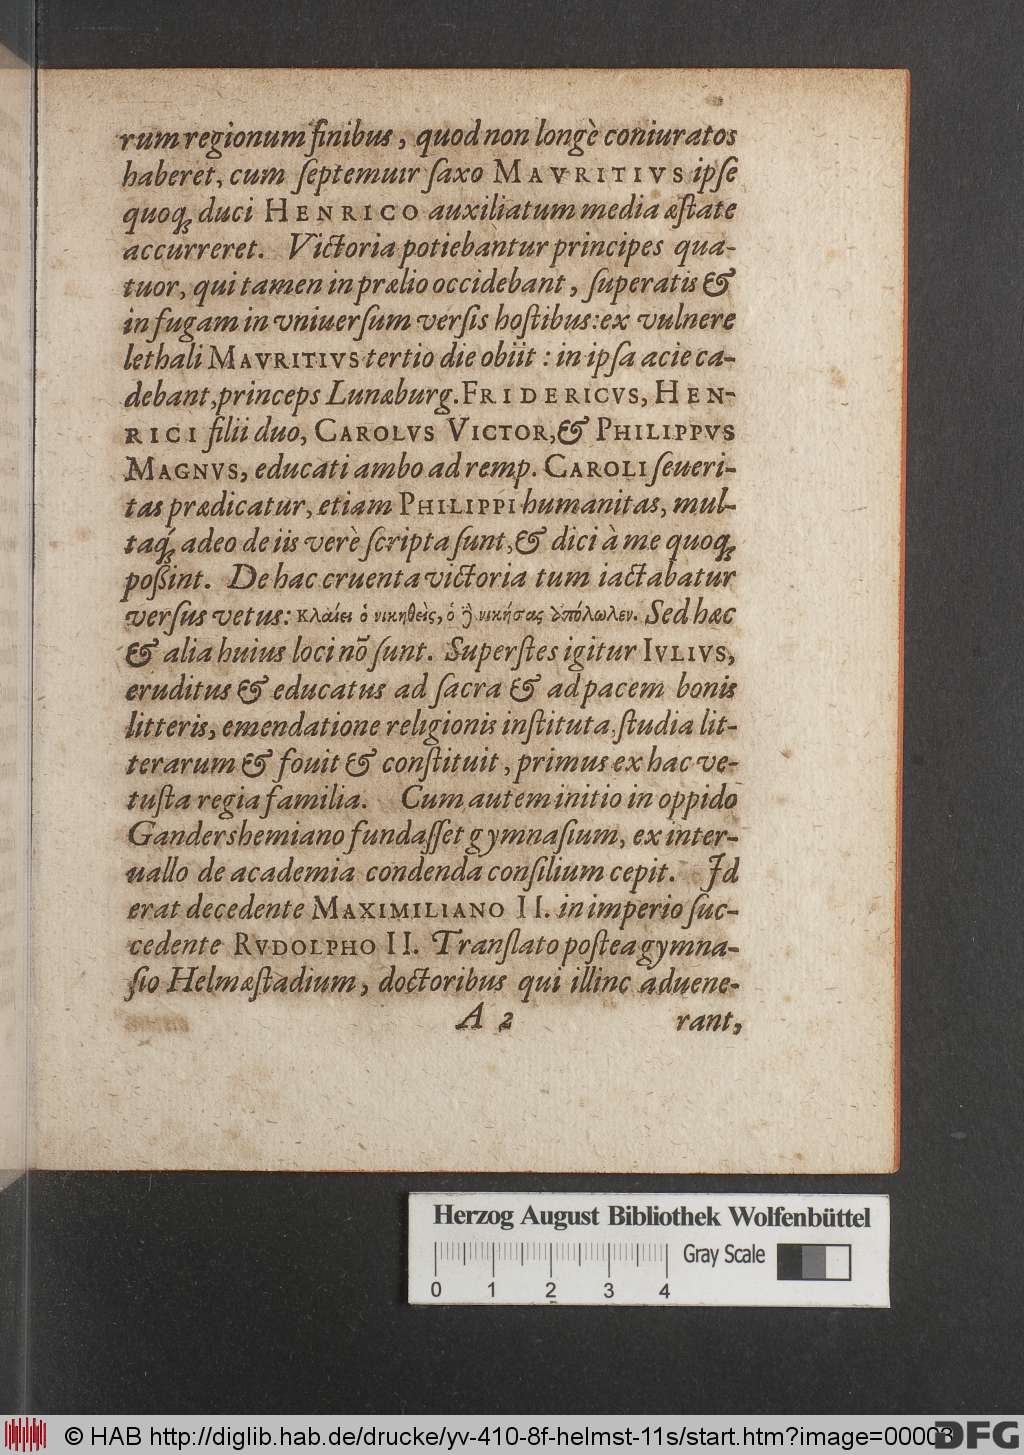 rum regionum finibus, quod non longè coniuratos
haberet, cum ſeptemuir ſaxo MAVRITIVS ipſe
quoq́; duci HENRICO auxiliatum media æſtate
accurreret. Victoria potiebantur principes qua-
tuor, qui tamen in prælio occidebant, ſuperatis &
in fugam in vniuerſum verſis hoſtibus: ex vulnere
lethali MAVRITIVS tertio die obiit: in ipſa acie ca-
debant, princeps Lunæburg. FRIDERICVS, HEN-
RICI filii duo, CAROLVS VICTOR, & PHILIPPVS
MAGNVS, educati ambo ad remp. CAROLI ſeueri-
tas prædicatur, etiam PHILIPPI humanitas, mul-
taq́; adeo de iis verè ſcripta ſunt, & dici à me quoq;
poßint. De hac cruenta victoria tum iactabatur
verſus vetus: κλαίει ὁ νικηθεὶς, ὁ ȣ̓͂ νικήσας ἀπόλωλεν. Sed hæc
& alia huius loci nõ ſunt. Superſtes igitur IVLIVS,
eruditus & educatus ad ſacra & ad pacem bonis
litteris, emendatione religionis inſtituta, ſtudia lit-
terarum & fouit & conſtituit, primus ex hac ve-
tuſta regia familia. Cum autem initio in oppido
Gandershemiano fundaſſet gymnaſium, ex inter-
uallo de academia condenda conſilium cepit. Id
erat decedente MAXIMILIANO II. in imperio ſuc-
cedente RVDOLPHO II. Tranſlato poſtea gymna-
ſio Helmæſtadium, doctoribus qui illinc aduene-
A 2 rant,
Herzog August Bibliothek Wolfenbüttel
Gray Scale
0 1 2 3 4
© HAB http://diglib.hab.de/drucke/yv-410-8f-helmst-11s/start.htm?image=00003
DFG